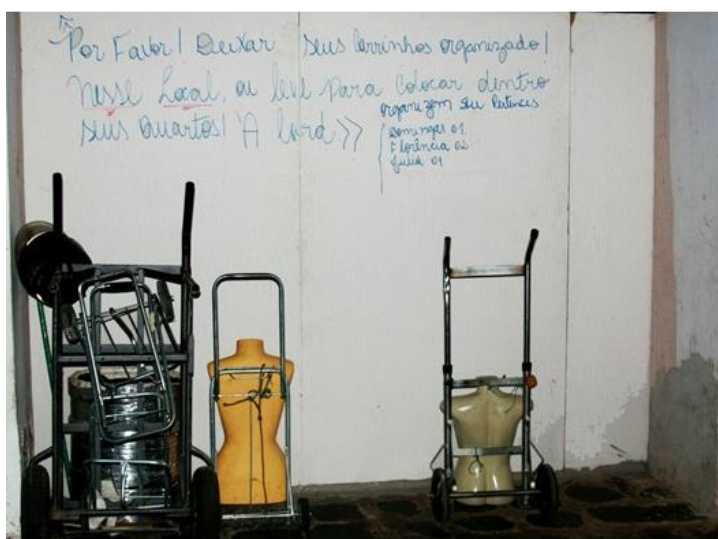 Por Favor! Deixar seus Carrinhos organizado!
nesse Local, ou leve para Colocar dentro
seus Quartos!
organizem seu Pertences
Domingas 01
Florência 02
Julia 01